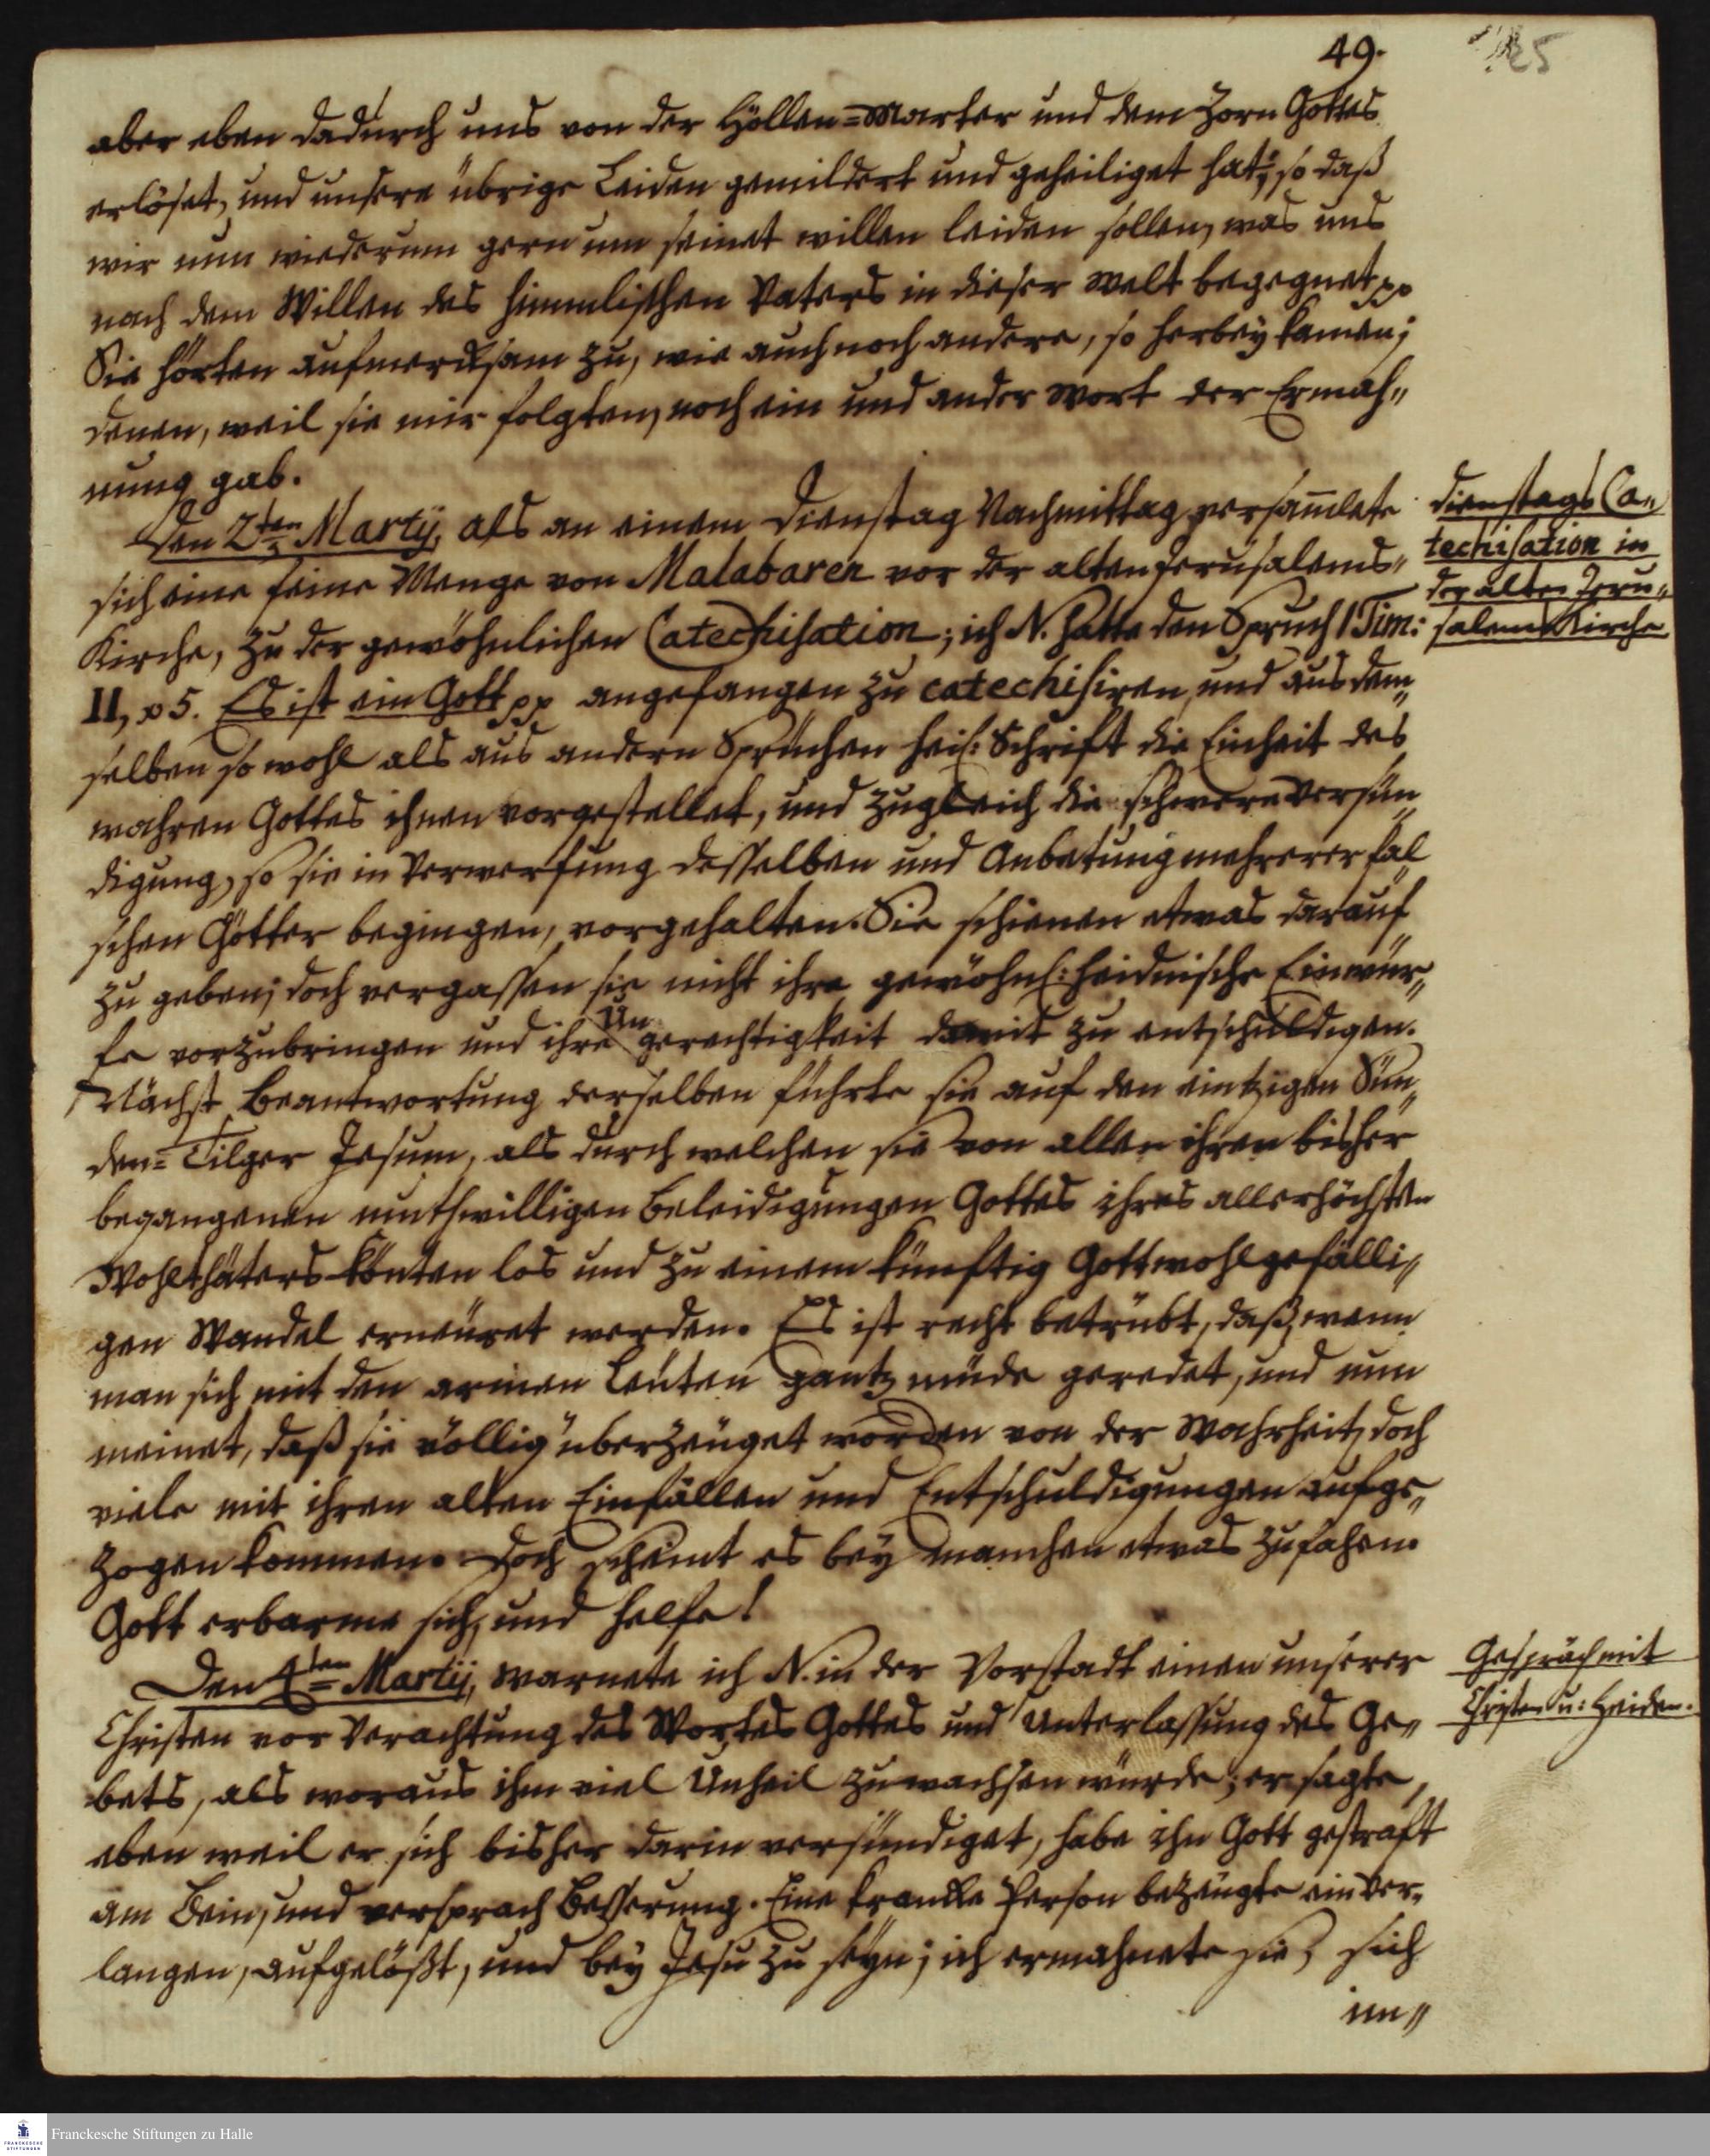 49.
25
aber eben dadurch uns von der Höllen=Marter und dem Zorn Gottes
erlöset, und unsere übrige Leiden gemildert und geheiliget hat; so daß
wir nun wiederum gern um seinet willen leiden sollen, was uns
nach dem Willen des himmlischen Vaters in dieser Welt begegnet pp
Sie hörten aufmercksam zu, wie auch noch andere, so herbey kamen;
denen, weil sie mir folgten, noch ein und ander Wort der Ermah„
nung gab.
Den 2ten Martij, als an einem Dienstag Nachmittag versam̄lete
sich eine feine Menge von Malabaren vor der alten Jerusalems„
Kirche, zu der gewöhnlichen Catechisation; ich N. hatte den Spruch 1 Tim:
II, v 5. Es ist ein Gott pp angefangen zu catechisiren, und aus dem„
selben so wohl als aus andern Sprüchen heil: Schrift die Einheit des
wahren Gottes ihnen vorgestellet, und zugleich die schwere Versün„
digung, so sie in Verwerfung desselben und Anbetung mehrerer fal„
schen Götter begingen, vorgehalten. Sie schienen etwas darauf
zu geben; doch vergassen sie nicht ihre gewöhnl: heidnische Einwür„
fe vorzubringen und ihre Ungerechtigkeit damit zu entschuldigen.
Nächst Beantwortung derselben führte sie auf den eintzigen Sün„
den=Tilger Jesum, als durch welchen sie von allen ihren bisher
begangenen muthwilligen Beleidigungen Gottes ihres allerhöchsten
Wohlthäters könten los und zu einem künftig Gott wohlgefälli„
gen Wandel erneuret werden. Es ist recht betrübt, daß, wenn
man sich mit den armen Leuten gantz müde geredet, und nun
meinet, daß sie völlig überzeuget worden von der Wahrheit, doch
viele mit ihren alten Einfällen und Entschuldigungen aufge„
zogen kommen. Doch scheint es bey manchen etwas zu fahen.
Gott erbarme sich, und helfe!
Den 4ten Martij, warnete ich N. in der Vorstadt einen unserer
Christen vor Verachtung des Wortes Gottes und Unterlassung des Ge„
bets, als woraus ihm viel Unheil zuwachsen würde; er sagte,
eben weil er sich bisher darin versündiget, habe ihn Gott gestraft
am Bein, und versprach Besserung. Eine krancke Person bezeugte ein Ver„
langen, aufgelößt, und bey Jesu zu seyn; ich ermahnete sie, sich
im„
Dienstags Ca„
techisation in
der alten Jeru„
salem Kirche
Gespräch mit
Christen u: Heiden.
Franckesche Stiftungen zu Halle
FRANCKESCHE
STIFTUNGEN